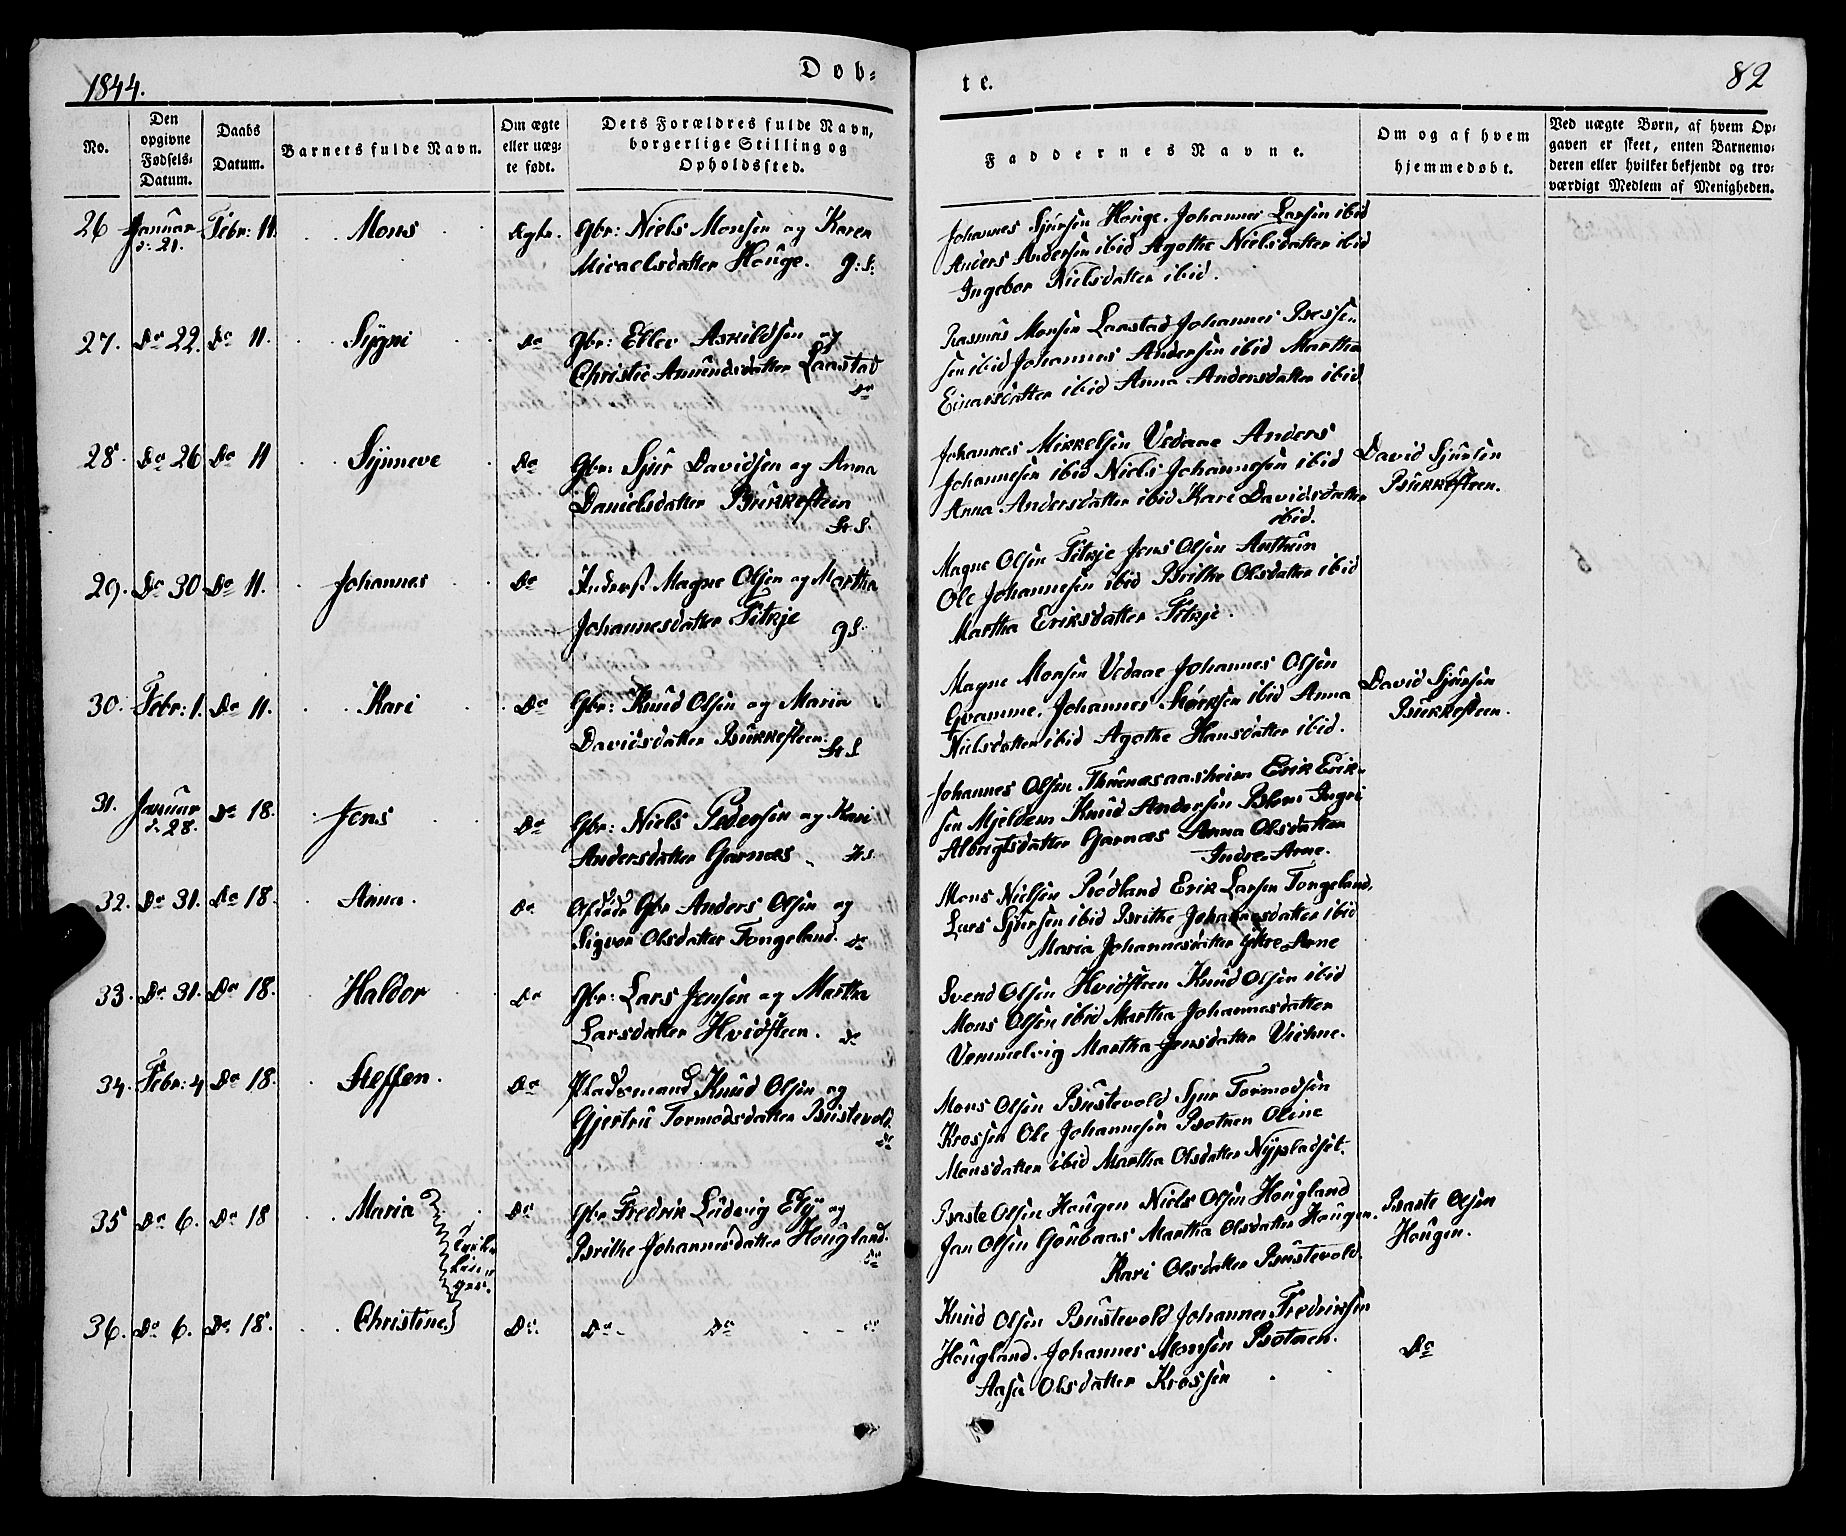 1844.
Døb-
te.
82
No.
Den opgivne Fødsels-Datum.
Daabs Datum.
Barnets fulde Navn.
Om ægte eller uægte født.
Dets Forældres fulde Navn, borgerlige Stilling og Opholdssted.
Faddernes Navne.
Om og af hvem hjemmedøbt.
Ved uægte Børn, af hvem Opgaven er skeet, enten Barnemoderen eller hvilket bekjendt og troværdigt Medlem af Menigheden.
26 Januar d: 21. Febr: 11 Mons Ægte. Gbr: Niels Monsen og Karen
Micaelsdatter Houge. g: s:
Johannes Sjursen Houge. Johannes Larsen ibid
Anders Andersen ibid Agothe Nielsdatter ibid
Ingebor Nielsdatter ibid.
27. Do 22. Do 11. Sygni Do Gbr: Eller Askildsen og
Christie Amundsdatter Laastad
Do
Rasmus Monsen Laastad Johannes Bresse-
sen ibid Johannes Andersen ibid Martha
Einarsdatter ibid Anna Andersdatter ibid
28. Do 26 Do 11 Synneve Do Gbr: Sjur Davidsen og Anna
Danielsdatter Bukkesteen
Johannes Mikkelsen Vedaae Anders
Johannesen ibid Niels Johannesen ibid
Anna Andersdatter ibid Kari Davidsdatter
ibid.
David Sjursen
Bukkesteen.
29. Do 30 Do 11. Johannes Do Inderst Magne Olsen og Martha
Johannesdatter Fitkje g s.
Magne Olsen Fitkje Jens Olsen Antun
Ole Johannesen ibid Brithe Olsdatter ibid
Martha Eriksdatter Fitkje.
30. Febr: 1. Do 11. Kari Do Gbr: Knud Olsen og Maria
Davidsdatter Bukkesteen.
Magne Monsen Vedaae Johannes Olsen
Gvamme. Johannes Størksen ibid Anna
Nielsdatter ibid Agothe Hansdatter ibid.
David Sjursen
Bukkesteen.
31. Januar d. 28. Do 18. Jens Do Gbr: Niels Pedersen og Kari
Andersdatter Garnæs
Johannes Olsen Thunæsaasheim Erik Erik-
sen Mjeldem Knud Andersen Blom Ingri
Albrigtsdatter Garnæs Anna Olsdatter
Indre Arne.
32. Do 31. Do 18. Anna. Do Gbr Anders Olsen og
Sigvor Olsdatter Tongeland. Do
Mons Nielsen Rødland Erik Larsen Tongeland,
Lars Sjursen ibid Brithe Johannesdatter ibid
Maria Johannesdatter Ytre Arne
33. Do 31. Do 18. Haldor Do Gbr: Lars Jensen og Martha
Larsdatter Hvidsteen. Do
Svend Olsen Hvidsteen Knud Olsen ibid
Mons Olsen ibid Martha Johannesdatter
Vemmelvig Martha Jensdatter Vichne.
34. Febr: 4 Do 18. Steffen. Do Pladsmand Knud Olsen og
Gjertru Tormodsdatter Bustevold.
Do
Mons Olsen Bustevold Sjur Tormodsen
Krossen Ole Johannesen Botnen Oline
Monsdatter ibid Martha Olsdatter Nypladset.
35 Do 6. Do 18 Maria Do Gbr Fredrik Ludvig Ely og
Brithe Johannesdatter Hougland.
Do
Baste Olsen Hougen Niels Olsen Hougland
Jan Olsen Goubaas Martha Olsdatter Hougen.
Kari Olsdatter Bustevold.
Baste Olsen
Hougen.
36. Do 6. Do 18. Christine Do. Do. Do
Knud Olsen Bustevold Johannes Fredriksen
Hougland. Johannes Monsen Botnen.
Aasa Olsdatter Krossen
Do